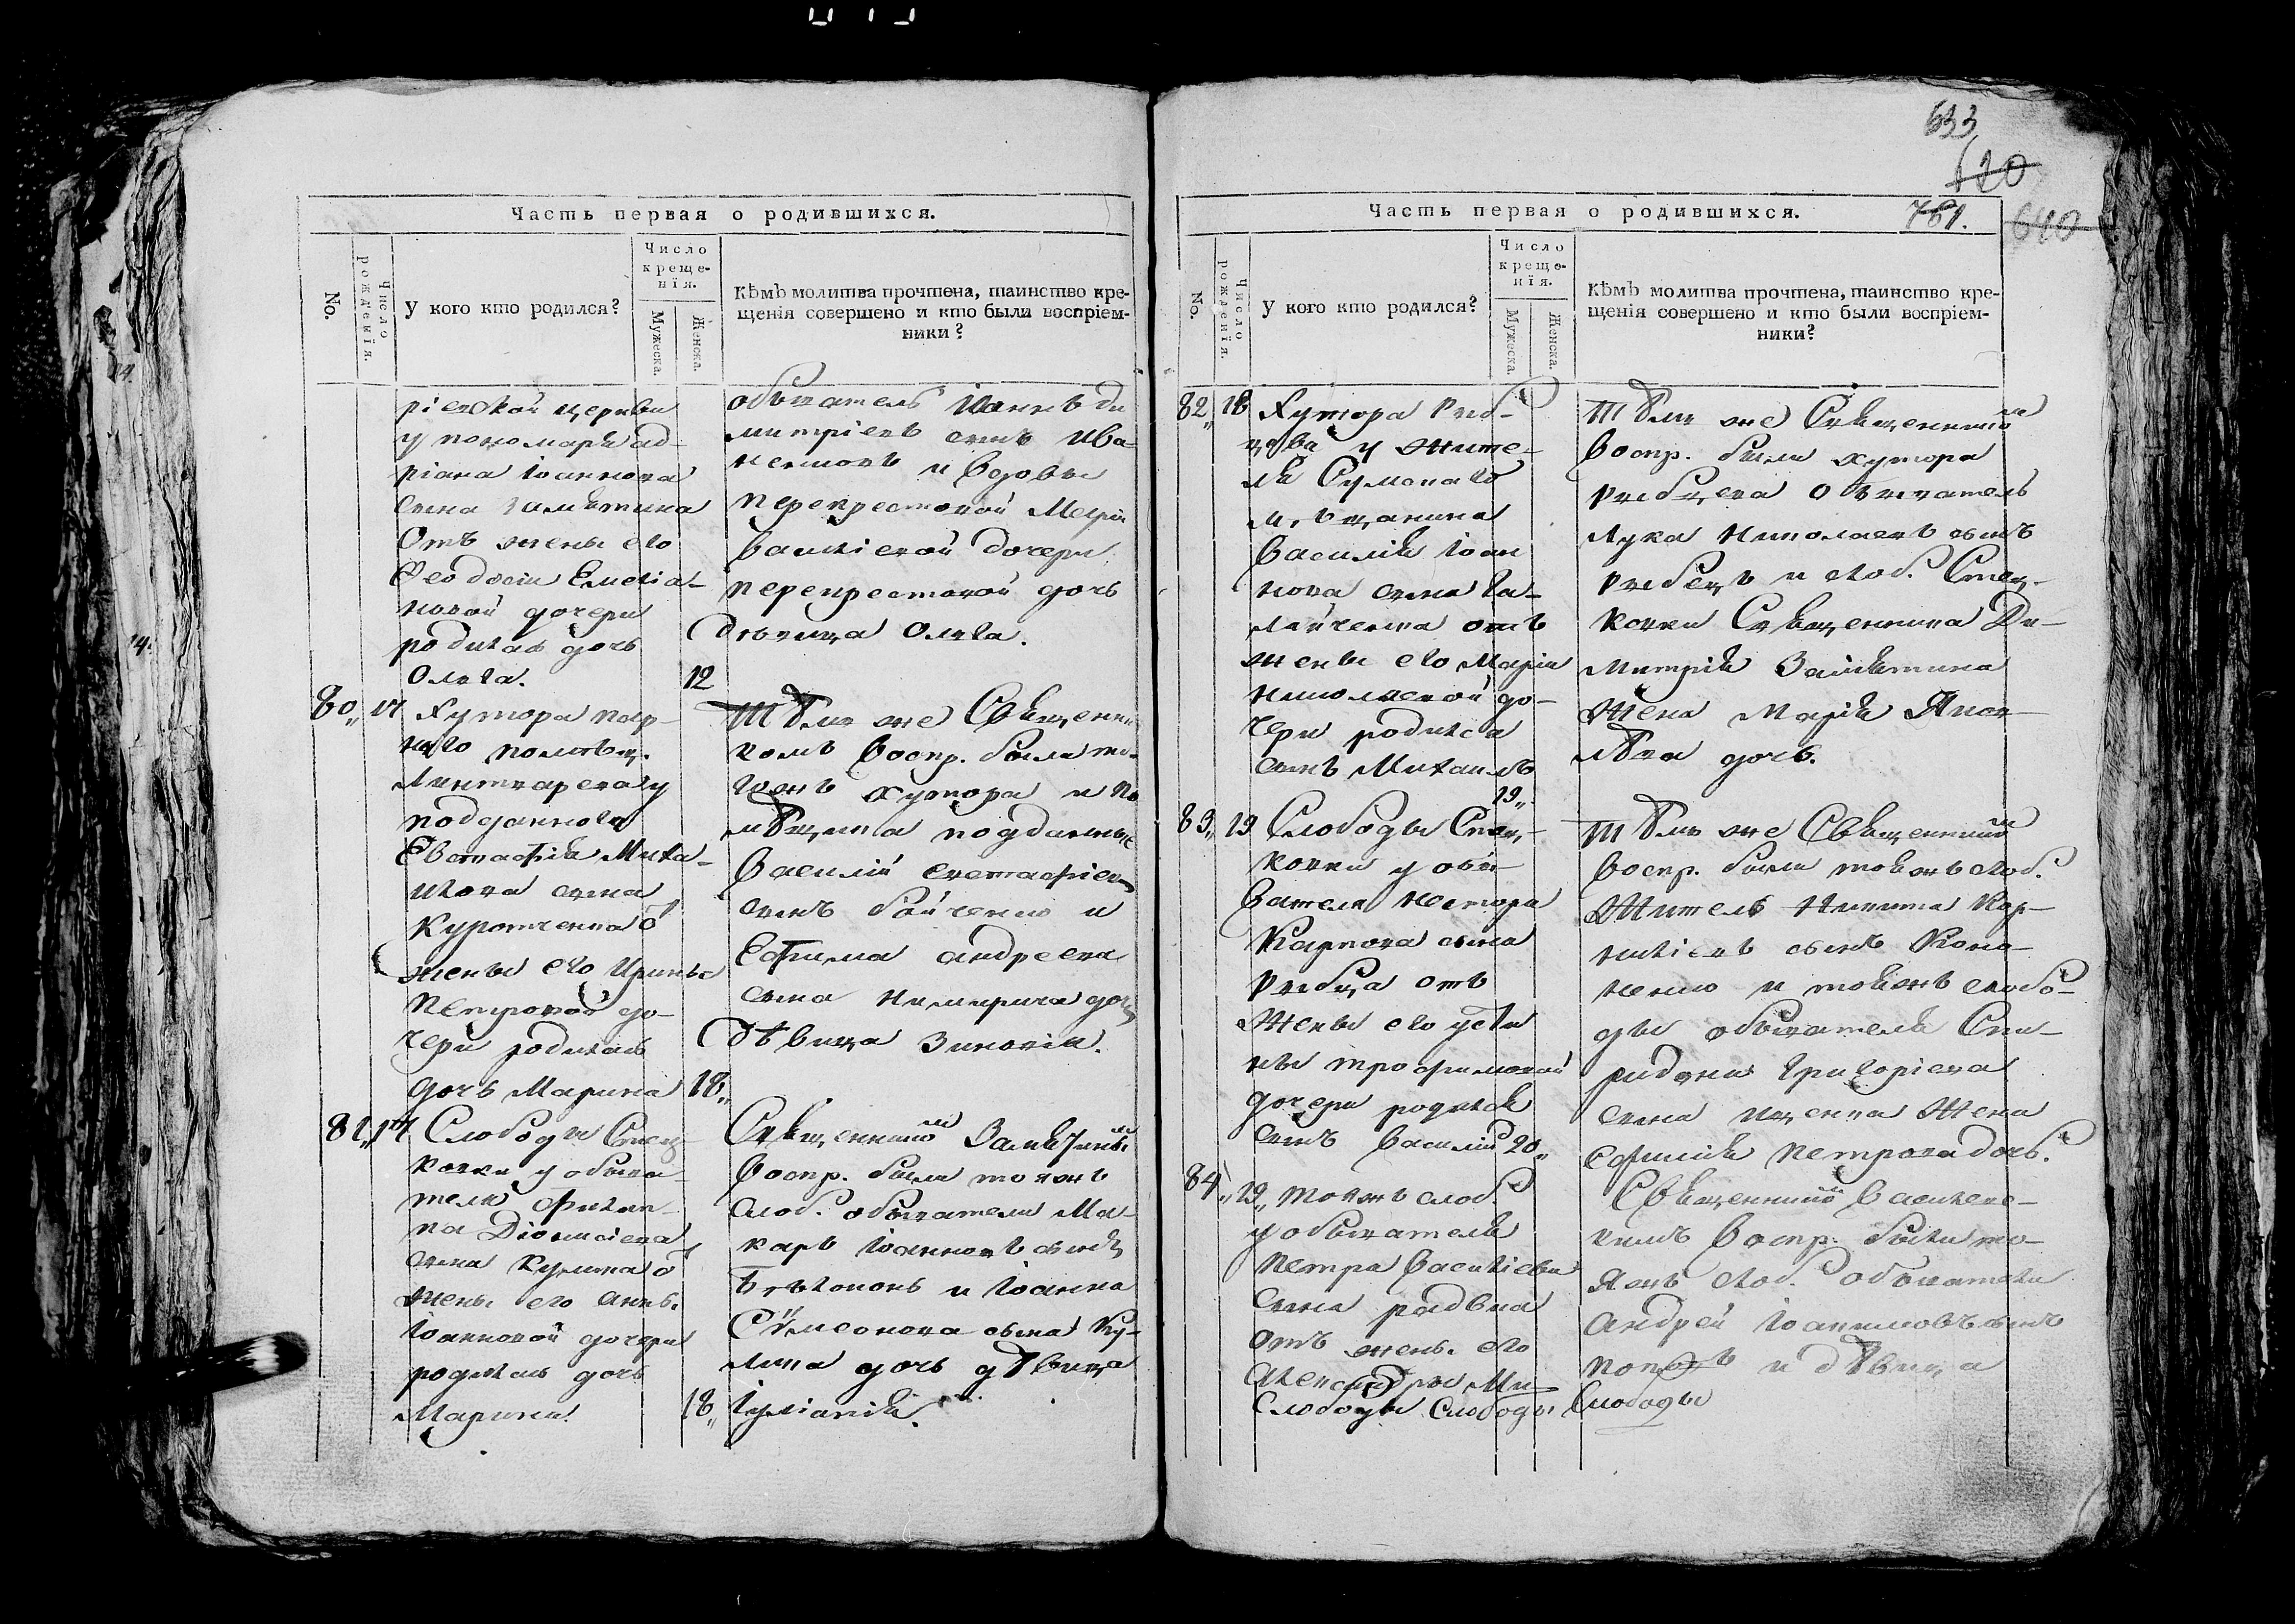 633
620
Часть первая о родившихся.
No.
Число рожденїя.
У кого кто родился?
Число крещенїя.
Мужеска.
Женска.
Кѣмъ молитва прочтена, таинство кре-
щенїя совершено и кто были воспрїем-
ники?
рiевской церкви
у пономаря ад-
рiана Iоаннова
сына Замятина
Отъ жены его
Феодосiи Емелiа-
новой дочери
родилась дочь
Олга.
12
обыватель Iоаннъ ди
митрiевъ сынъ Ива
ненковъ и вдовы
перекрестовой
Василiевой дочери
перекрестовой дочь
дѣвица Олга.
80 17
Хутора
помѣщ.
подданнова
Евстафiя Миха-
илова сына
жены его Ирины
Петровой до-
чери родилась
дочь Марина
18
Тѣмъ же Священни
комъ воспр. были то-
гожъ хутора и по
мѣщика подданные
Василiй Евстафiевъ
сынъ Бойченко и
Ефима андреева
сына дочь
Дѣвица Зиновiя.
81 17
Слободы Стец
ковки у обыва-
теля филип-
па Дiонисiева
сына Кулика
жены его Анны
Iоанновой дочери
родилась дочь
Марина.
18
Священникомъ Замятинымъ
Воспр. были тояжъ
Слоб. обыватели Ма-
каръ Iоанновъ сынъ
и Iоанна
Сѵмеонова сына Ку-
лика дочь дѣвица
Iулiанiя.
Часть первая о родившихся.
761.
640
No.
Число рожденїя.
У кого кто родился?
Число крещенїя.
Мужеска.
Женска.
Кѣмъ молитва прочтена, таинство кре-
щенїя совершено и кто были воспрїем-
ники?
82 18
Хутора Риб-
цова у жите-
ля Сумскаго
мѣщанина
Василiя Iоан
нова сына Га-
лайченка отъ
жены его Марiи
Николаевой до-
чери родился
сынъ Михаилъ
19
Тѣмъ же Священникомъ
Воспр. были хутора
рибцева обыватель
Лука Николаевъ сынъ
рибецъ и слоб. Стец-
ковки Священника Ди-
митрiя Замятина
Жена Марiя Яков-
лѣва дочь.
83 19
Слободы Стец-
ковки у обы-
вателя Нестора
Карпова сына
Рибца отъ
Жены его Усти
ны трофимовой
дочери родился
сынъ Василiй 20
Тѣмъ же Священникомъ
воспр. были тояжъ слоб.
Житель Никита Кор-
нилiевъ сынъ Коно-
ненко и тояжъ слобо-
ды обывателя Спи-
ридона Григорiева
сына Ищенка Жена
Ефимiя Петрова дочь.
84 19
тояжъ слоб.
у обывателя
Петра Василiева
сына
отъ жены его
Александры Ми-
Слободы Слободы
Священникомъ Василев-
скимъ Воспр. были то-
яжъ слоб. обыватели
Андрей Iоакимовъ сынъ
Поповъ и дѣвица
Слободы